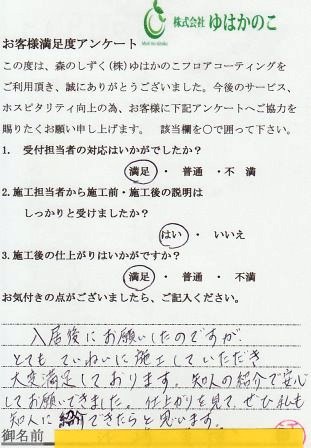 株式会社 ゆはかのこ
お客様満足度アンケート
この度は、森のしずく(株)ゆはかのこフロアコーティングを
ご利用頂き、誠にありがとうございました。今後のサービス、
ホスピタリティ向上の為、お客様に下記アンケートへご協力を
賜りたくお願い申し上げます。 該当欄を〇で囲って下さい。
1. 受付担当者の対応はいかがでしたか？
満足 ・ 普通 ・ 不 満
2.施工担当者から施工前・施工後の説明は
しっかりと受けましたか？
はい ・ いいえ
3.施工後の仕上がりはいかがですか？
満足 ・ 普通 ・ 不満
お気付きの点がございましたら、ご記入ください。
入居後にお願いしたのですが、
とても ていねいに施工していただき
大変満足しております。知人の紹介で安心
してお願いできました。仕上がりを見て、ぜひ私も
知人に紹介できたらと思います。
御名前